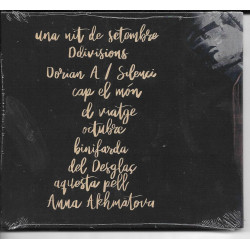 una nit de setembre
Ddivisions
Dorian A / Silenci
cap el món
el viatge
octubre
binifarda
del Desglaç
aquesta pell
Anna Akhmàtova